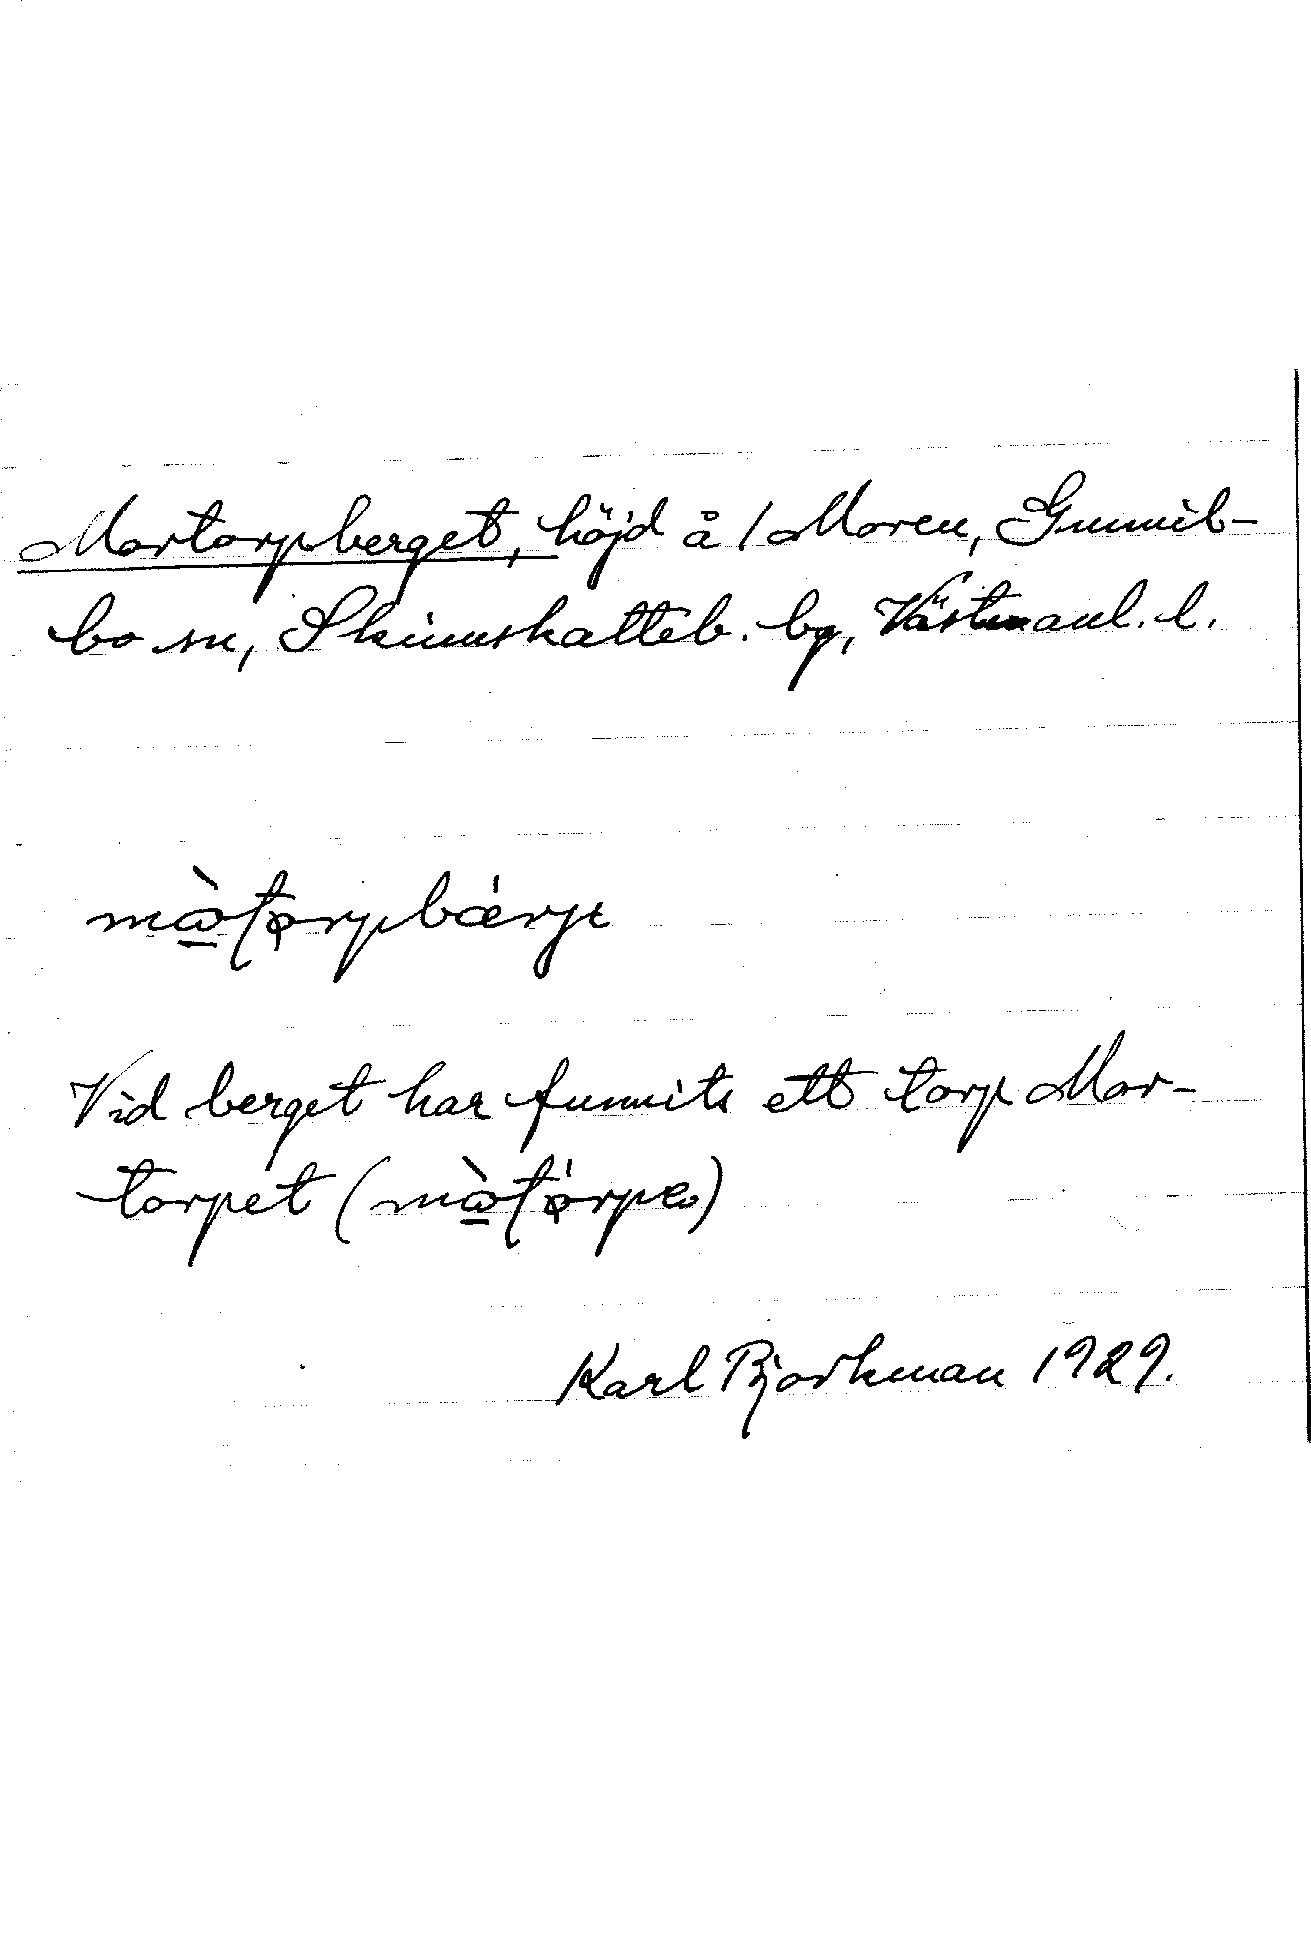 Mortorpberget, höjd å 1 Moren, Gunnil-
bo sn, Skinnskatteb. bg, Västmanl. l.
mὼtǫrpbærjɛ
Vid berget har funnits ett torp Mor-
torpet (mὼtǫ́rpə)
Karl Bjorkman 1929.